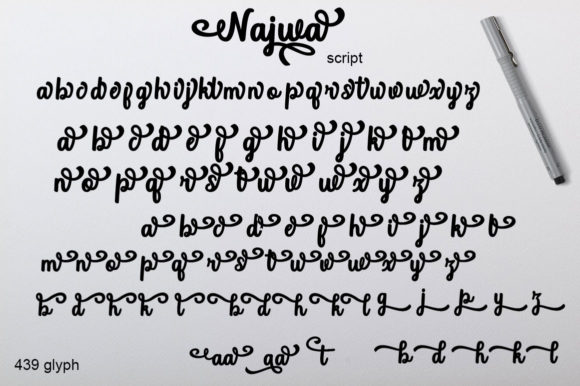 Najwa
script
a b c d e f g h i j k l m n o p q r s t u v w x y z
a b c d e f g h i j k l m
n o p q r s t u v w x y z
a b c d e f g h i j k l
m n o p q r s t u v w x y z
b d h k l b d h k l g j p y z
aa aa t b d h k l
439 glyph